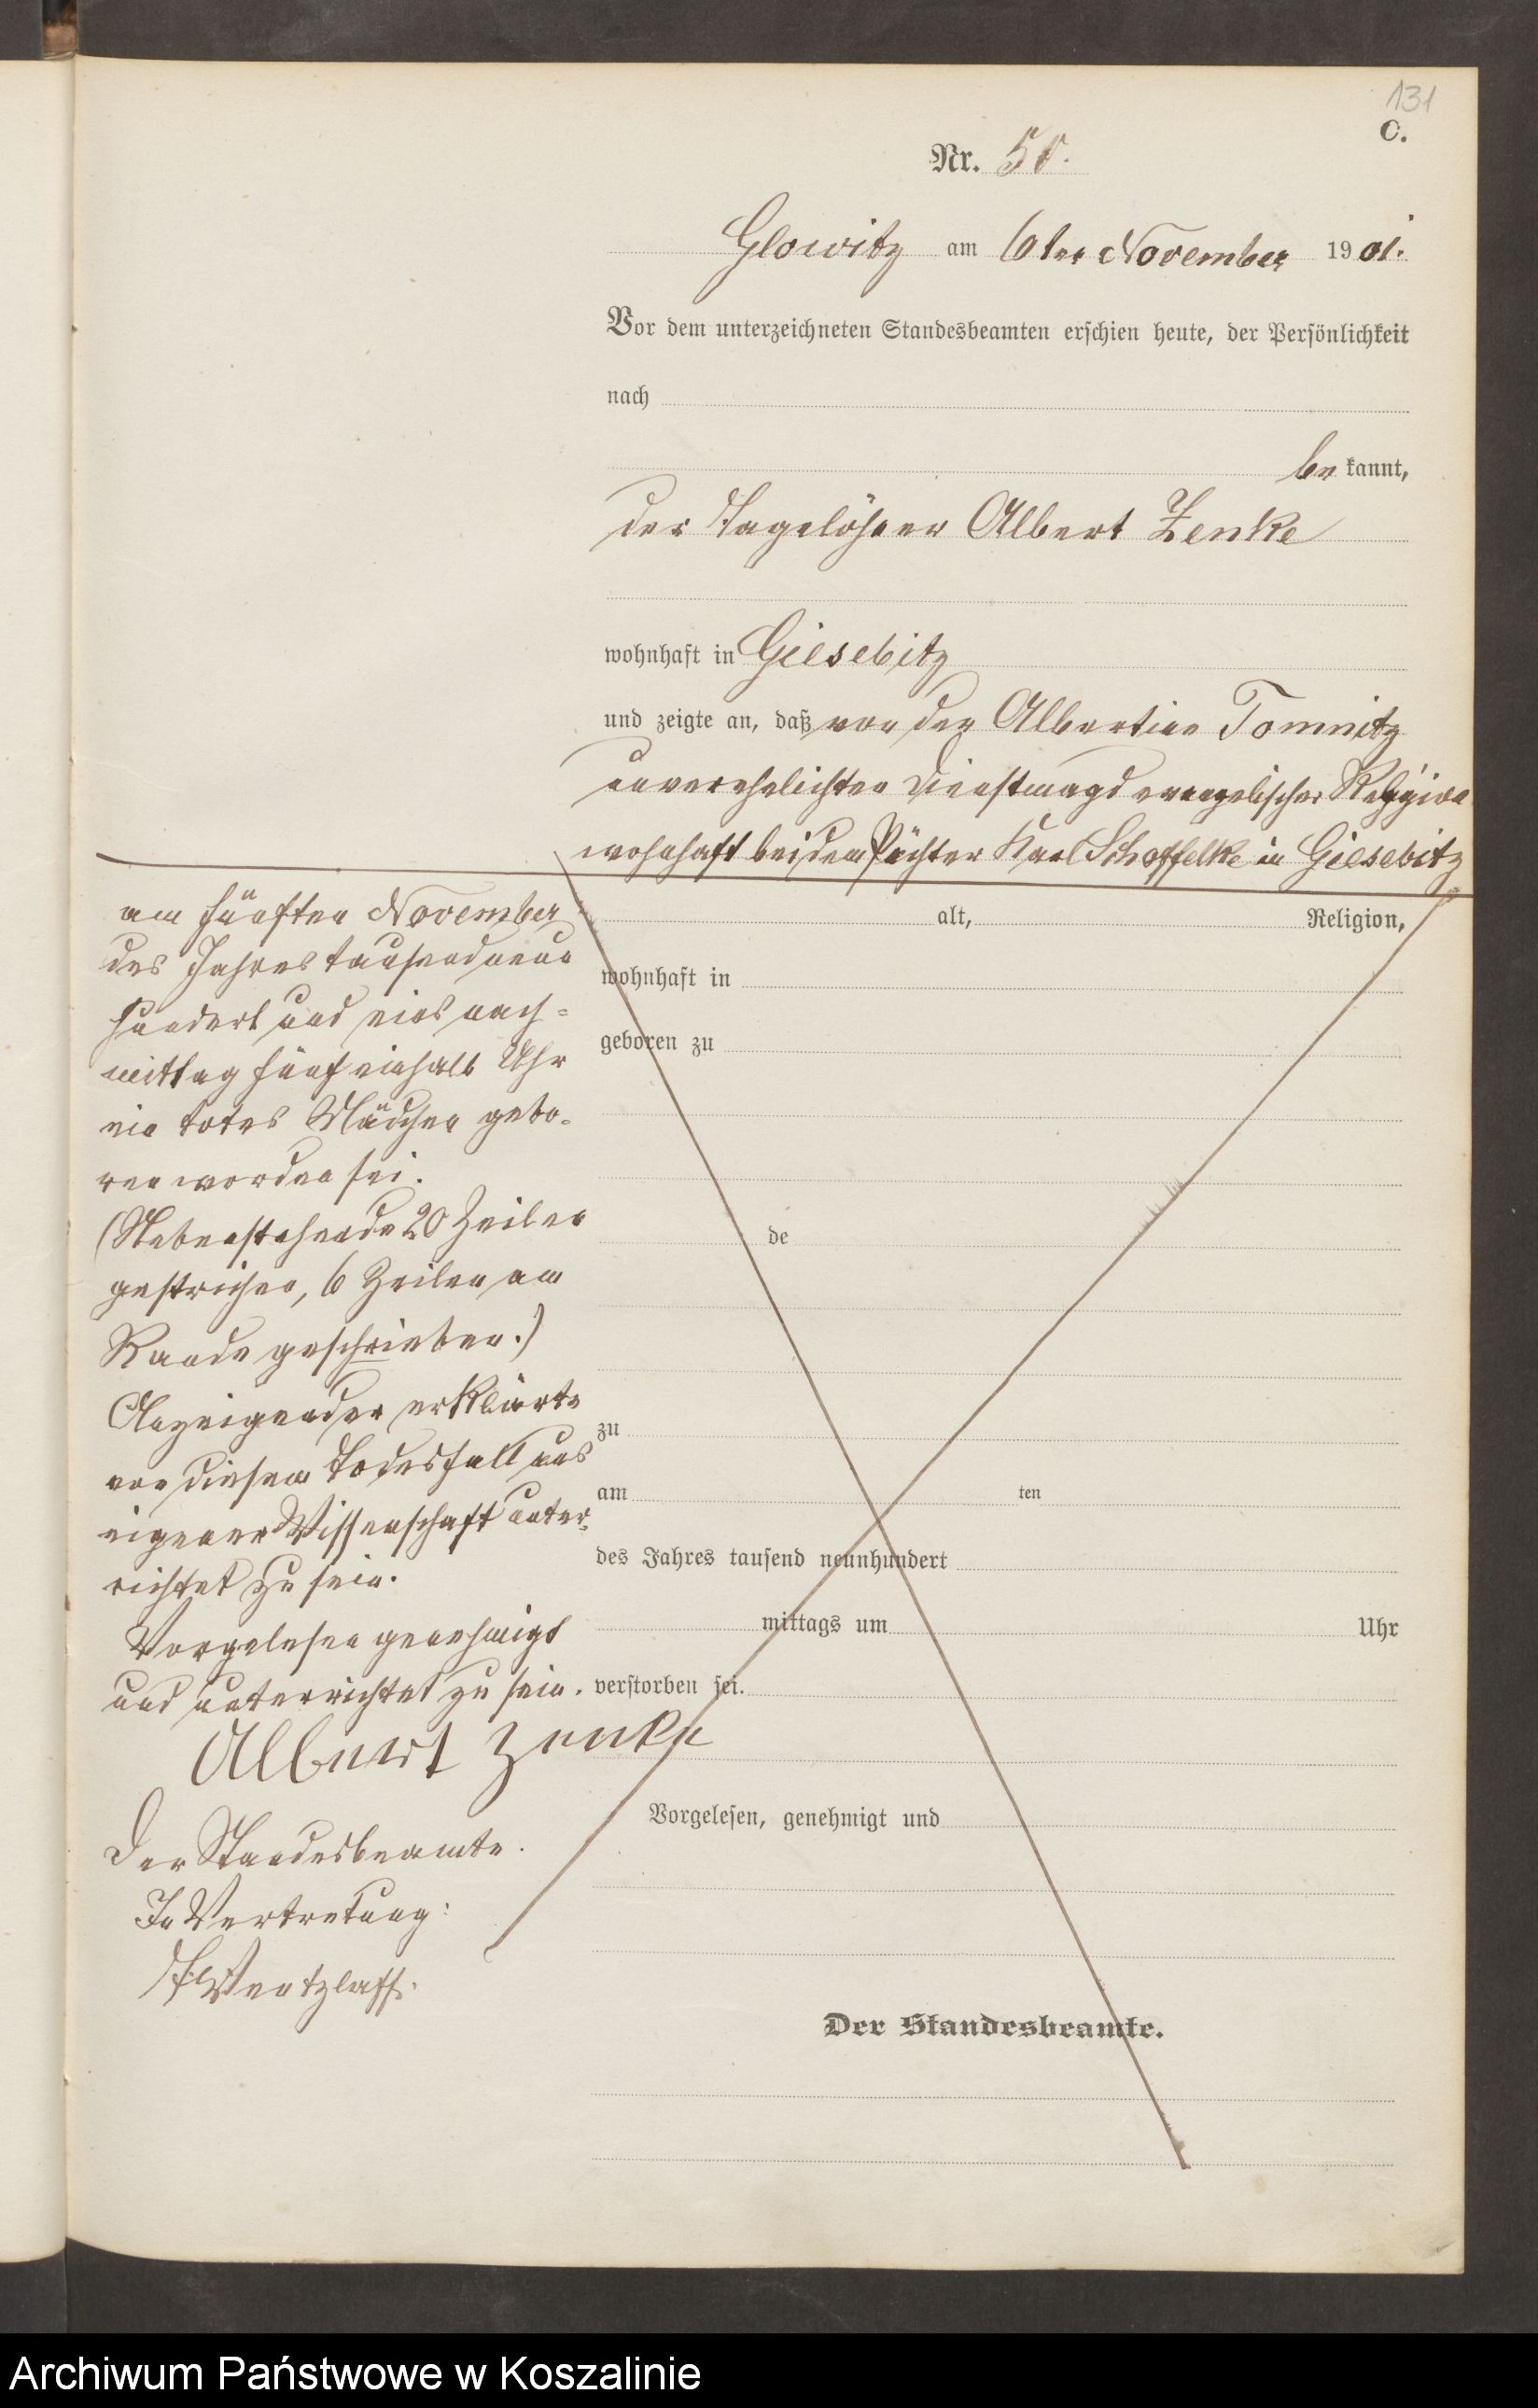 131
C.
Nr. 50.
Glowitz am 6ten November 1901.
Vor dem unterzeichneten Standesbeamten erschien heute, der Persönlichkeit
nach
be kannt,
der Tagelöhner Albert Zenke
wohnhaft in Giesebitz
und zeigte an, daß von der Albertine Tomnitz
unverehelichten Dienstmagd evangelischer Religion
wohnhaft bei dem Pächter Karl Schoffelke in Giesebitz
am fünften November
des Jahres tausendneun
hundert und eins nach=
mittag fünfeinhalb Uhr
ein totes Mädchen gebo=
ren worden sei.
(Nebenstehende 20 Zeilen
gestrichen, 6 Zeilen am
Rande geschrieben.)
Anzeigender erklärte
von diesem Todesfall aus
eigener Wissenschaft unter=
richtet zu sein.
Vorgelesen genehmigt
und unterrichtet zu sein.
Albert Zenke
Der Standesbeamte.
In Vertretung:
Wentzlaff.
alt, Religion,
wohnhaft in
geboren zu
de
zu
am ten
des Jahres tausend neunhundert
mittags um Uhr
verstorben sei.
Vorgelesen, genehmigt und
Der Standesbeamte.
Archiwum Państwowe w Koszalinie